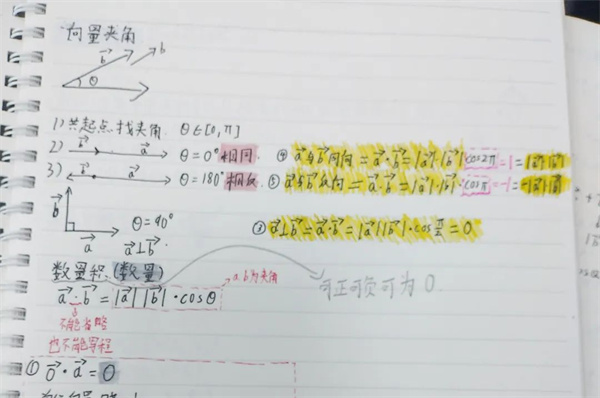 向量夹角
b b
θ
1) 共起点找夹角 θ∈[0,π]
2) b a θ=0° 相同. ④ a与b同向 = a·b = |a|·|b|·cos2π = 1 = |a|·|b|
3) b a θ=180° 相反 ⑤ a与b反向 = a·b = |a|·|b|·cosπ = -1 = -|a|·|b|
b a θ=90°
a⊥b ③ a⊥b = a·b = |a||b|·cosπ/2 = 0
数量积 (数量) a.b为夹角
a·b = |a||b|·cosθ 可正可负可为0.
不能省略
也不能写程
① 0·a = 0